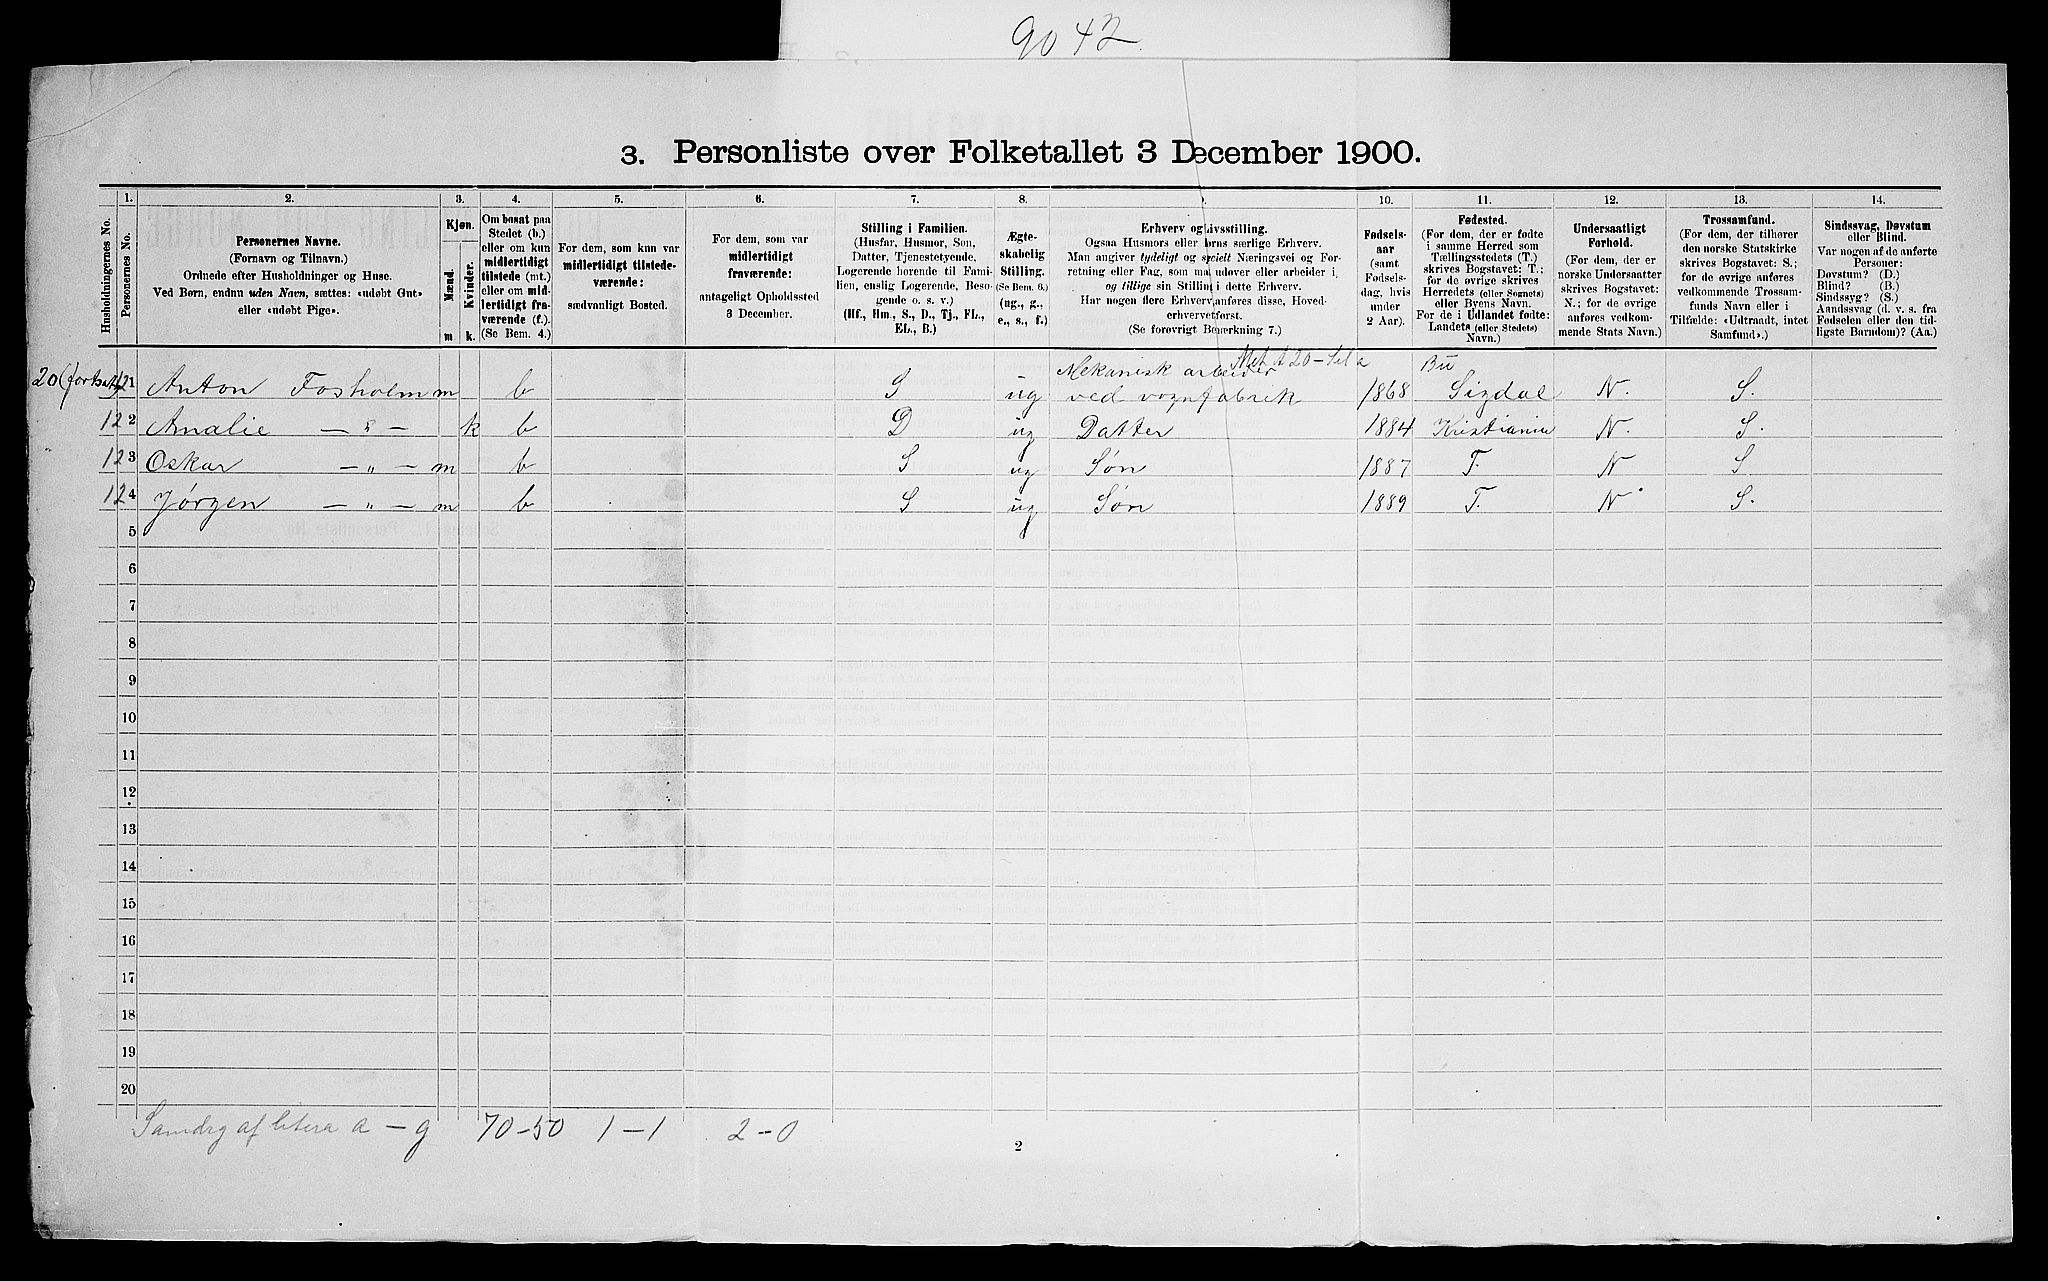 9042.
3. Personliste over Folketallet 3 December 1900.
Husholdningernes No.
1.
Personernes No.
2.
Personernes Navne.
(Fornavn og Tilnavn.)
Ordnede efter Husholdninger og Huse.
Ved Børn, endnu uden Navn, sættes: «udøbt Gut»
eller «udøbt Pige».
3.
Kjøn.
Mænd.
Kvinder.
m k.
4.
Om bosat paa
Stedet (b.)
eller om kun
midlertidigt
tilstede (mt.)
eller om mid-
lertidigt fra-
værende (f.).
(Se Bem. 4.)
5.
For dem, som kun var
midlertidigt tilstede-
værende:
sædvanligt Bosted.
6.
For dem, som var
midlertidigt
fraværende:
antageligt Opholdssted
3 December.
7.
Stilling i Familien.
(Husfar, Husmor, Søn,
Datter, Tjenestetyende,
Logerende hørende til Fami-
lien, enslig Logerende, Besø-
gende o. s. v.)
(Hf., Hm., S., D., Tj., FL.,
EL., B.)
8.
Ægte-
skabelig
Stilling.
(Se Bem. 6.)
(ug., g.,
e., s., f.)
9.
Erhverv og Livsstilling.
Ogsaa Husmors eller Børns særlige Erhverv.
Man angiver tydeligt og specielt Næringsvei og For-
retning eller Fag, som man udøver eller arbeider i,
og tillige sin Stilling i dette Erhverv.
Har nogen flere Erhverv, anføres disse, Hoved-
erhvervet først.
(Se forøvrigt Bemerkning 7.)
10.
Fødsels-
aar
(samt
Fødsels-
dag, hvis
under
2 Aar).
11.
Fødested.
(For dem, der er fødte
i samme Herred som
Tællingsstedets (T.)
skrives Bogstavet: T.;
for de øvrige skrives
Herredets (eller Sognets)
eller Byens Navn.
For de i Udlandet fødte:
Landets (eller Stedets)
Navn.)
12.
Undersaatligt
Forhold.
(For dem, der er
norske Undersaatter
skrives Bogstavet:
N.; for de øvrige
anføres vedkom-
mende Stats Navn.)
13.
Trossamfund.
(For dem, der tilhører
den norske Statskirke
skrives Bogstavet: S.;
for de øvrige anføres
vedkommende Trossam-
funds Navn eller i
Tilfælde: «Udtraadt, intet
Samfund».)
14.
Sindssvag, Døvstum
eller Blind.
Var nogen af de anførte
Personer:
Døvstum? (D.)
Blind? (B.)
Sindssyg? (S.)
Aandssvag (d. v. s. fra
Fødselen eller den tid-
ligste Barndom)? (Aa.)
20 (fortsat) 1 Anton Fosholm m b S ug Mekanisk arbeider ved vognfabrik 1868 Sigdal N. S.
12 2 Amalie — " — k b D ug Datter 1884 Kristiania N. S.
12 3 Oskar — " — m b S ug Søn 1887 T. N S
12 4 Jørgen — " — m b S ug Søn 1889 T. N. S.
5
6
7
8
9
10
11
12
13
14
15
16
17
18
19
20
Samdrg af litera a — g 70-50 1-1 2-0
2